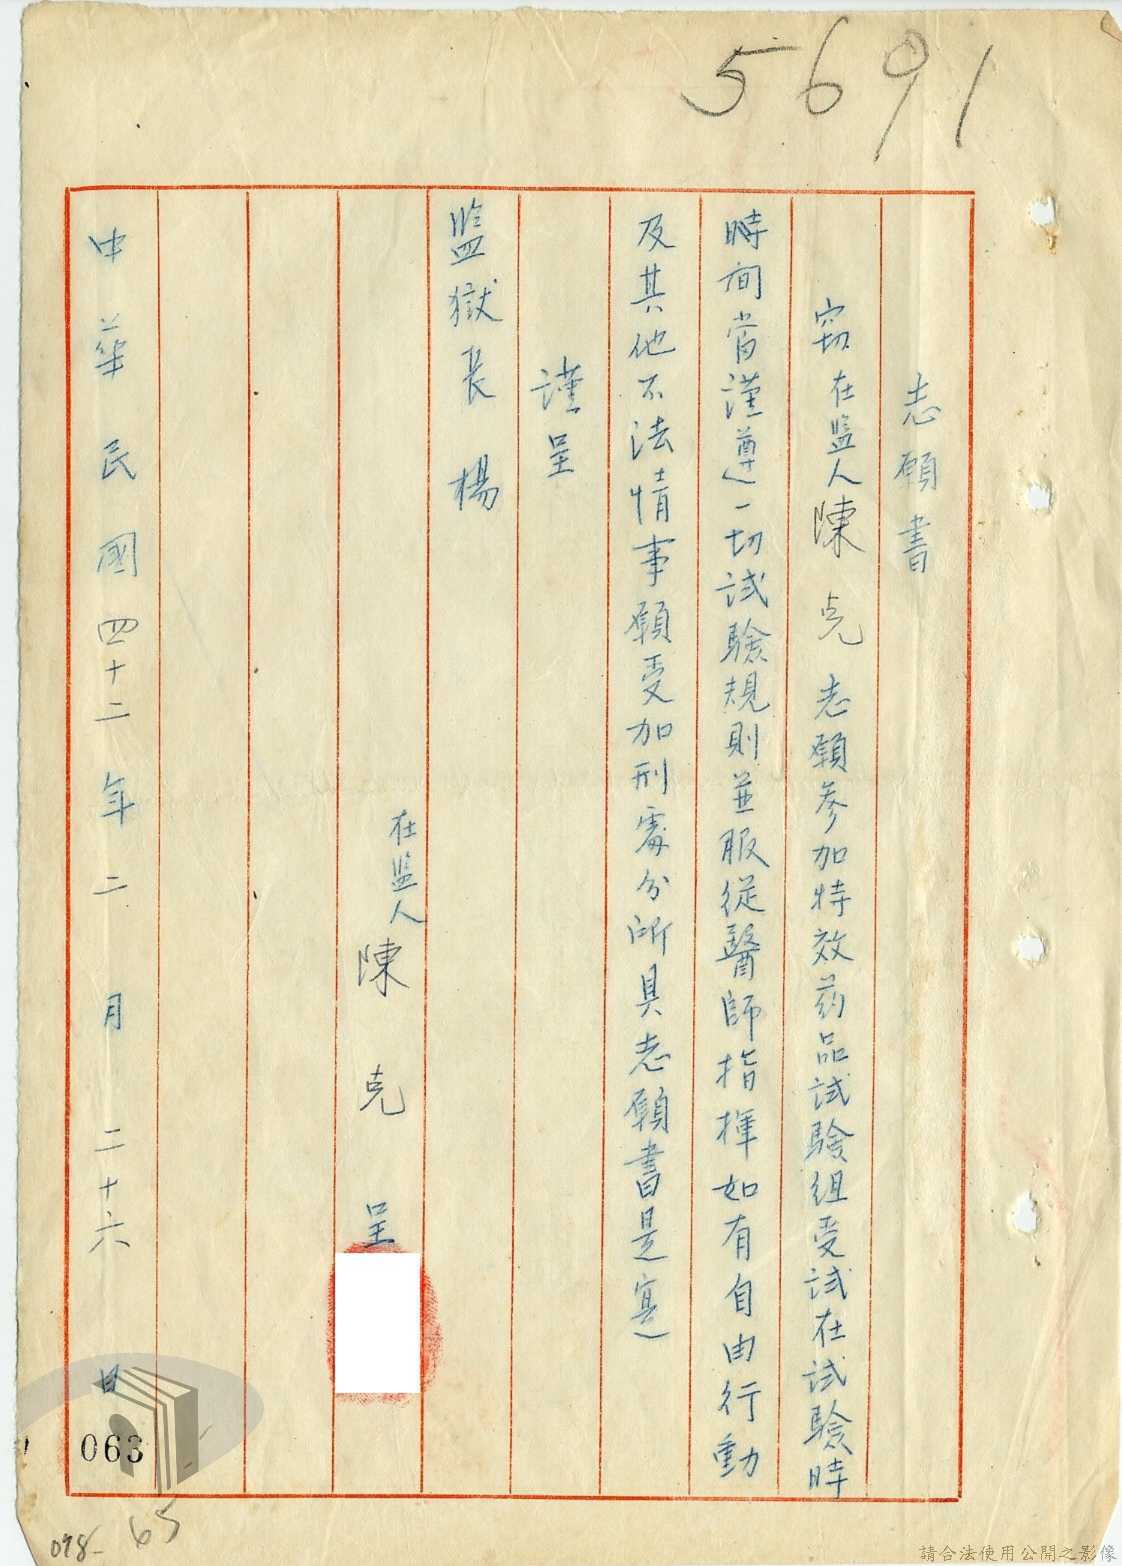 5691
志願書
窃在監人陳克志願参加特效药品試驗組受試在試驗時
時间當謹遵一切試驗規則並服從醫師指揮如有自由行動
及其他不法情事願受加刑處分所具志願書是寔
謹呈
監獄長 楊
在監人 陳克 呈
中華民國四十二年二月二十六日
063
098- 65
請合法使用公開之影像